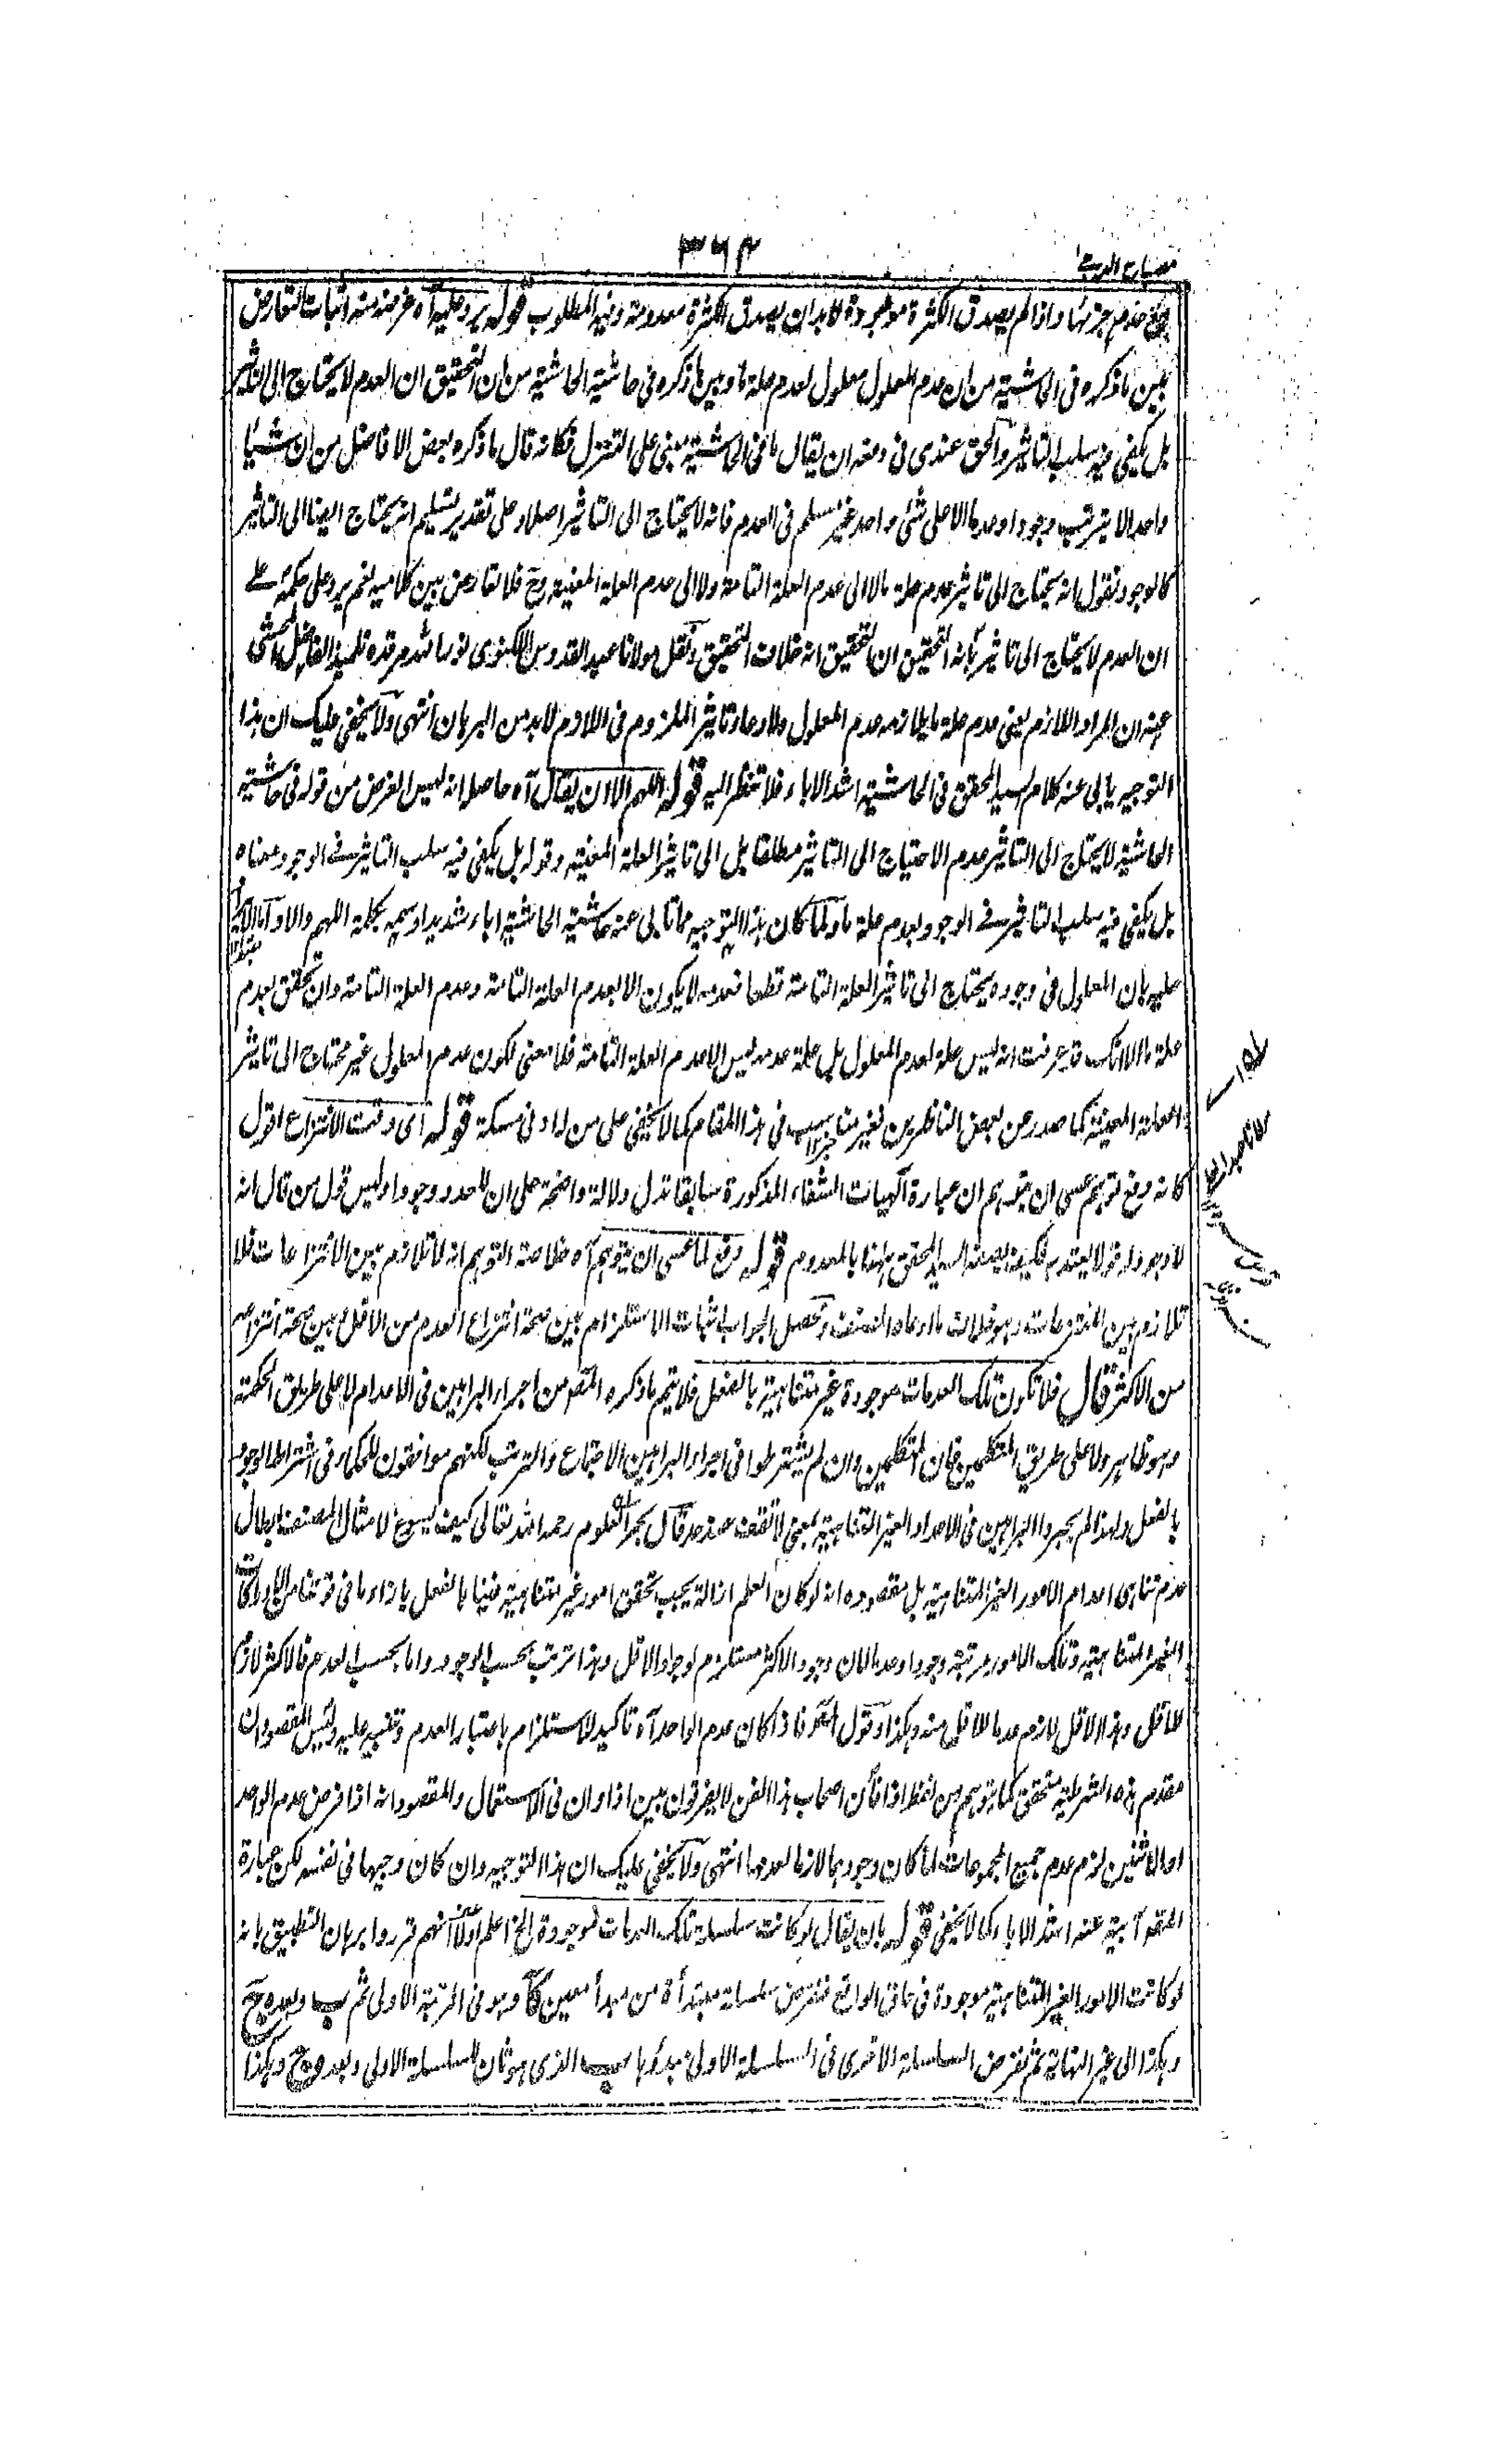 مصباح الدجى
٣٦٤
عدم جزئها واذا لم يصدق الكثرة موجودة لابد ان يصدق الكثرة معدومة وفيه المطلوب قوله يرد عليه آه غرضه منه اثبات التعارض
بين ما ذكره فى الحاشية من ان عدم المعلول معلول لعدم علة ما وبين ما ذكره فى حاشية الحاشية من ان التحقيق ان العدم لا يحتاج الى التاثير
بل يكفى فيه سلب التاثير والحق عندى فى دفعه ان يقال ما فى الحاشية مبنى على التنزل فكانه قال ما ذكره بعض الافاضل من ان شيئا
واحدا لا يترتب وجودا وعدما الا على شئ واحد غير مسلم فى العدم فانه لا يحتاج الى التاثير اصلا وعلى تقدير تسليم انه يحتاج ايضا الى التاثير
كالوجود نقول انه يحتاج الى تاثير عدم علة ما لا الى عدم العلة التامة ولا الى عدم العلة المعينة وح فلا تعارض بين كلاميه نعم يرد على حكمه على
ان العدم لا يحتاج الى تاثير بانه التحقيق ان التحقيق انه خلاف التحقيق ونقل مولانا عبد القدوس اللكنوى نور الله مرقده تلميذ الفاضل المحشى
عنه ان المراد اللازم يعنى عدم علة ما يلازمه عدم المعلول ولادعاء تاثير الملزوم فى اللازم لابد من البرهان انتهى ولا يخفى عليك ان هذا
التوجيه يابى عنه كلام السيد المحقق فى الحاشية اشد الاباء فلا تنظر اليه قوله اللهم الا ان يقال آه حاصله انه ليس الغرض من قوله فى حاشية
الحاشية لا يحتاج الى التاثير عدم الاحتياج الى التاثير مطلقا بل الى تاثير العلة المعينة وقوله بل يكفى فيه سلب التاثير فى الوجود معناه
بل يكفى فيه سلب التاثير فى الوجود بعدم علة ما ولما كان هذا التوجيه مما تابى عنه حاشية الحاشية اباء شديدا وسمه بكلمة اللهم والا
عليه بان المعلول فى وجوده يحتاج الى تاثير العلة التامة قطعا فعدمه لا يكون الا بعدم العلة التامة وعدم العلة التامة وان تحقق بعدم
علة ما الا انك قد عرفت انه ليس علة لعدم المعلول بل علة عدمه ليس الا عدم العلة التامة فلا معنى لكون عدم المعلول غير محتاج الى تاثير
العلة المعينة كما صدر عن بعض الناظرين فغير مناسب فى هذا المقام كما لا يخفى على من له ادنى مسكة قوله اى وقت الانتزاع اقول
كانه دفع لتوهم عسى ان يتوهم ان عبارة الٓهيات الشفاء المذكورة سابقا تدل دلالة واضحة على ان للعدد وجودا وليس قول من قال انه
لا وجود له قولا يعتد به فكيف يصفه السيد المحقق ههنا بالمعدوم قوله دفع لما عسى ان يتوهم آه خلاصة التوهم انه لا تلازم بين الانتزاعات فلا
تلازم بين المنتزعات وهو خلاف ما ادعاه المصنف ومحصل الجواب اثبات الاستلزام بين صحة انتزاع العدم من الاقل وبين صحة انتزاعه
من الاكثر قال فلا تكون تلك العدمات موجودة غير متناهية بالفعل فلا يتم ما ذكره المص من اجراء البراهين فى الاعدام لا على طريق الحكمة
وهو ظاهر ولا على طريق المتكلمين فان المتكلمين وان لم يشترطوا فى اجراء البراهين الاجتماع والترتب لكنهم موافقون للحكماء فى اشتراط الوجود
بالفعل ولهذا لم يجروا البراهين فى الاعداد الغير المتناهية بمعنى لا تقف عند حد قال بحر العلوم رحمه الله تعالى كيف يسوغ لامثال المصنف ابطال
عدم تناهى اعدام الامور الغير المتناهية بل مقصوده انه لو كان العلم ازالة يجب تحقق امور غير متناهية فينا بالفعل بازاء ما فى قوتنا من الادراكات
الغير المتناهية وتلك الامور مرتبة وجودا وعدما لان وجود الاكثر مستلزم لوجود الاقل وهذا ترتب بحسب الوجود واما بحسب العدم فالاكثر لازم
للاقل وهذا الاقل لازمه عدما للاقل منه وهكذا وقول المص فاذا كان عدم الواحد آه تاكيد للاستلزام باعتبار العدم وتنبيه عليه وليس المقصود ان
مقدم هذه الشرطية متحقق كما يتوهم من لفظ اذا فان اصحاب هذا الفن لا يفرقون بين اذا وان فى الاستعمال والمقصود انه اذا فرض عدم الواحد
او الاثنين لزم عدم جميع المجموعات لما كان وجودها لازما لعدمها انتهى ولا يخفى عليك ان هذا التوجيه وان كان وجيها فى نفسه لكن عبارة
المص آبية عنه اشد الاباء كما لا يخفى قوله بان يقال لو كانت سلسلة تلك العدمات موجودة الخ اعلم اولا انهم قرروا برهان التطبيق بانه
لو كانت الامور الغير المتناهية موجودة فى حاق الواقع نفرض سلسلة مبتدأة من مبدأ معين كآ وهو فى المرتبة الاولى ثم ب وبعده ج
وهكذا الى غير النهاية ثم نفرض السلسلة الاخرى فى السلسلة الاولى مبدؤها ب الذى هو ثان للسلسلة الاولى وبعده ج وهكذا